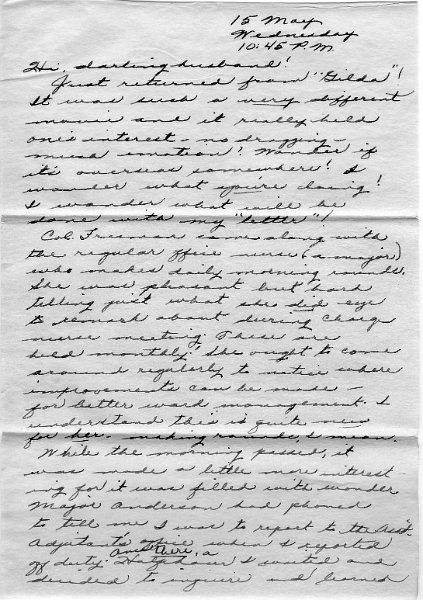 15 May
Wednesday
10:45 P.M.
Hi, darling husband!
Just returned from "Gilda"!
It was such a very different
movie and it really held
one's interest - no dragging -
much emotion! Wonder if
it's overseas somewhere! I
wonder what you're doing!
I wonder what will be
done with my "letter"!
Col. Freeman came along with
the regular office nurse (a major)
who makes daily morning rounds.
She was pleasant but hard
telling just what she did eye
to remark about during Charge
nurse meeting. These are
held monthly. She ought to come
around regularly to notice where
improvements can be made -
for better ward management. I
understand this is quite new
for her - making rounds, I mean.
While the morning passed, it
was made a little more interest
ing for it was filled with wonder
Major Anderson had phoned
to tell me I was to report to the Ass't
Adjutant's office when I reported
off duty. I waited and
decided to inquire and learned